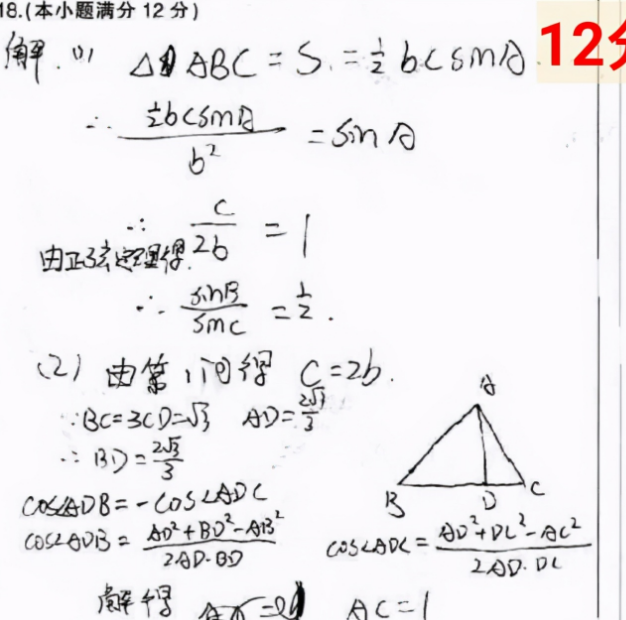 18.(本小题满分 12 分)
12分
解.(1) △ABC = S = ½bcsinA.
∴ ½bcsinA / b² = sinA
∴ c / 2b = 1
由正弦定理得.
∴ sinB / sinC = ½.
(2) 由第1问得 C=2b.
∵BC=3CD=√3 AD=2√3/3
∴ BD=2√3/3
A
B D C
cos∠ADB=-cos∠ADC
cos∠ADB= AD²+BD²-AB² / 2AD·BD cos∠ADC= AD²+DC²-AC² / 2AD·DC
解得 AC=1